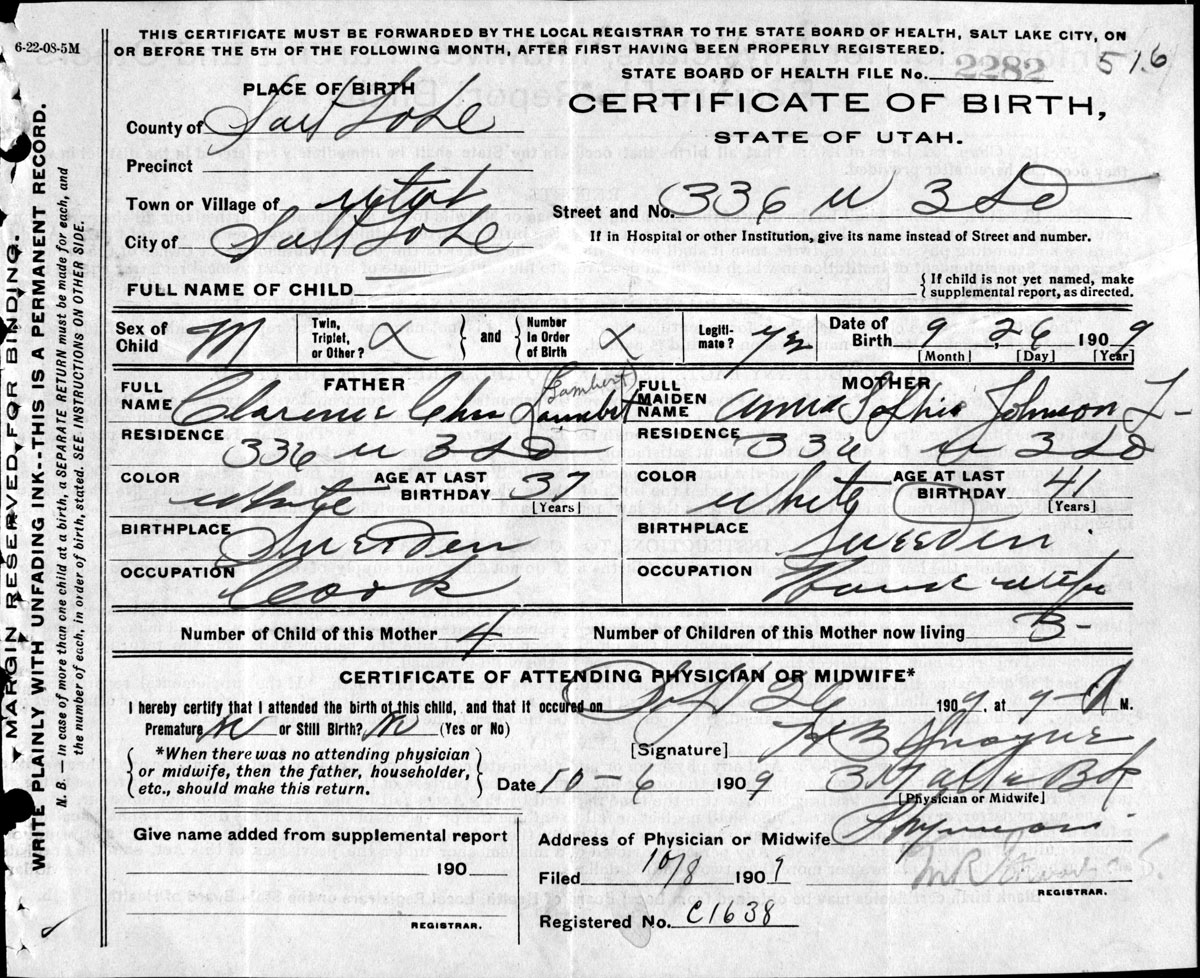 6-22-08-5M
THIS CERTIFICATE MUST BE FORWARDED BY THE LOCAL REGISTRAR TO THE STATE BOARD OF HEALTH, SALT LAKE CITY, ON
OR BEFORE THE 5TH OF THE FOLLOWING MONTH, AFTER FIRST HAVING BEEN PROPERLY REGISTERED.
STATE BOARD OF HEALTH FILE No. 2282 516
PLACE OF BIRTH
CERTIFICATE OF BIRTH,
STATE OF UTAH.
County of Salt Lake
Precinct
Town or Village of Utah
Street and No. 336 W 3 So
City of Salt Lake
If in Hospital or other Institution, give its name instead of Street and number.
FULL NAME OF CHILD
{ If child is not yet named, make
supplemental report, as directed.
Sex of Child M
Twin, Triplet, or Other?
} and {
Number In Order of Birth
Legitimate? yes
Date of Birth 9 26 1909
[Month] [Day] [Year]
FATHER
FULL NAME Clarence Lambert
Lambert
RESIDENCE
336 W 3 So
COLOR White
AGE AT LAST BIRTHDAY 37
[Years]
BIRTHPLACE Sweden
OCCUPATION Cook
MOTHER
FULL MAIDEN NAME Anna Sophia Johnson L-
RESIDENCE
336 W 3 So
COLOR White
AGE AT LAST BIRTHDAY 41
[Years]
BIRTHPLACE Sweden
OCCUPATION House wife
Number of Child of this Mother 4
Number of Children of this Mother now living 3
CERTIFICATE OF ATTENDING PHYSICIAN OR MIDWIFE*
I hereby certify that I attended the birth of this child, and that it occured on 26 1909, at 9 A M.
Premature? or Still Birth? (Yes or No)
[Signature] H B
*When there was no attending physician
or midwife, then the father, householder,
etc., should make this return.
Date 10-6 1909
[Physician or Midwife]
Give name added from supplemental report
190
REGISTRAR.
Address of Physician or Midwife
Filed 10/8 1909
REGISTRAR.
Registered No. C1638
MARGIN RESERVED FOR BINDING.
WRITE PLAINLY WITH UNFADING INK--THIS IS A PERMANENT RECORD.
N. B. — In case of more than one child at a birth, a SEPARATE RETURN must be made for each, and
the number of each, in order of birth, stated. SEE INSTRUCTIONS ON OTHER SIDE.